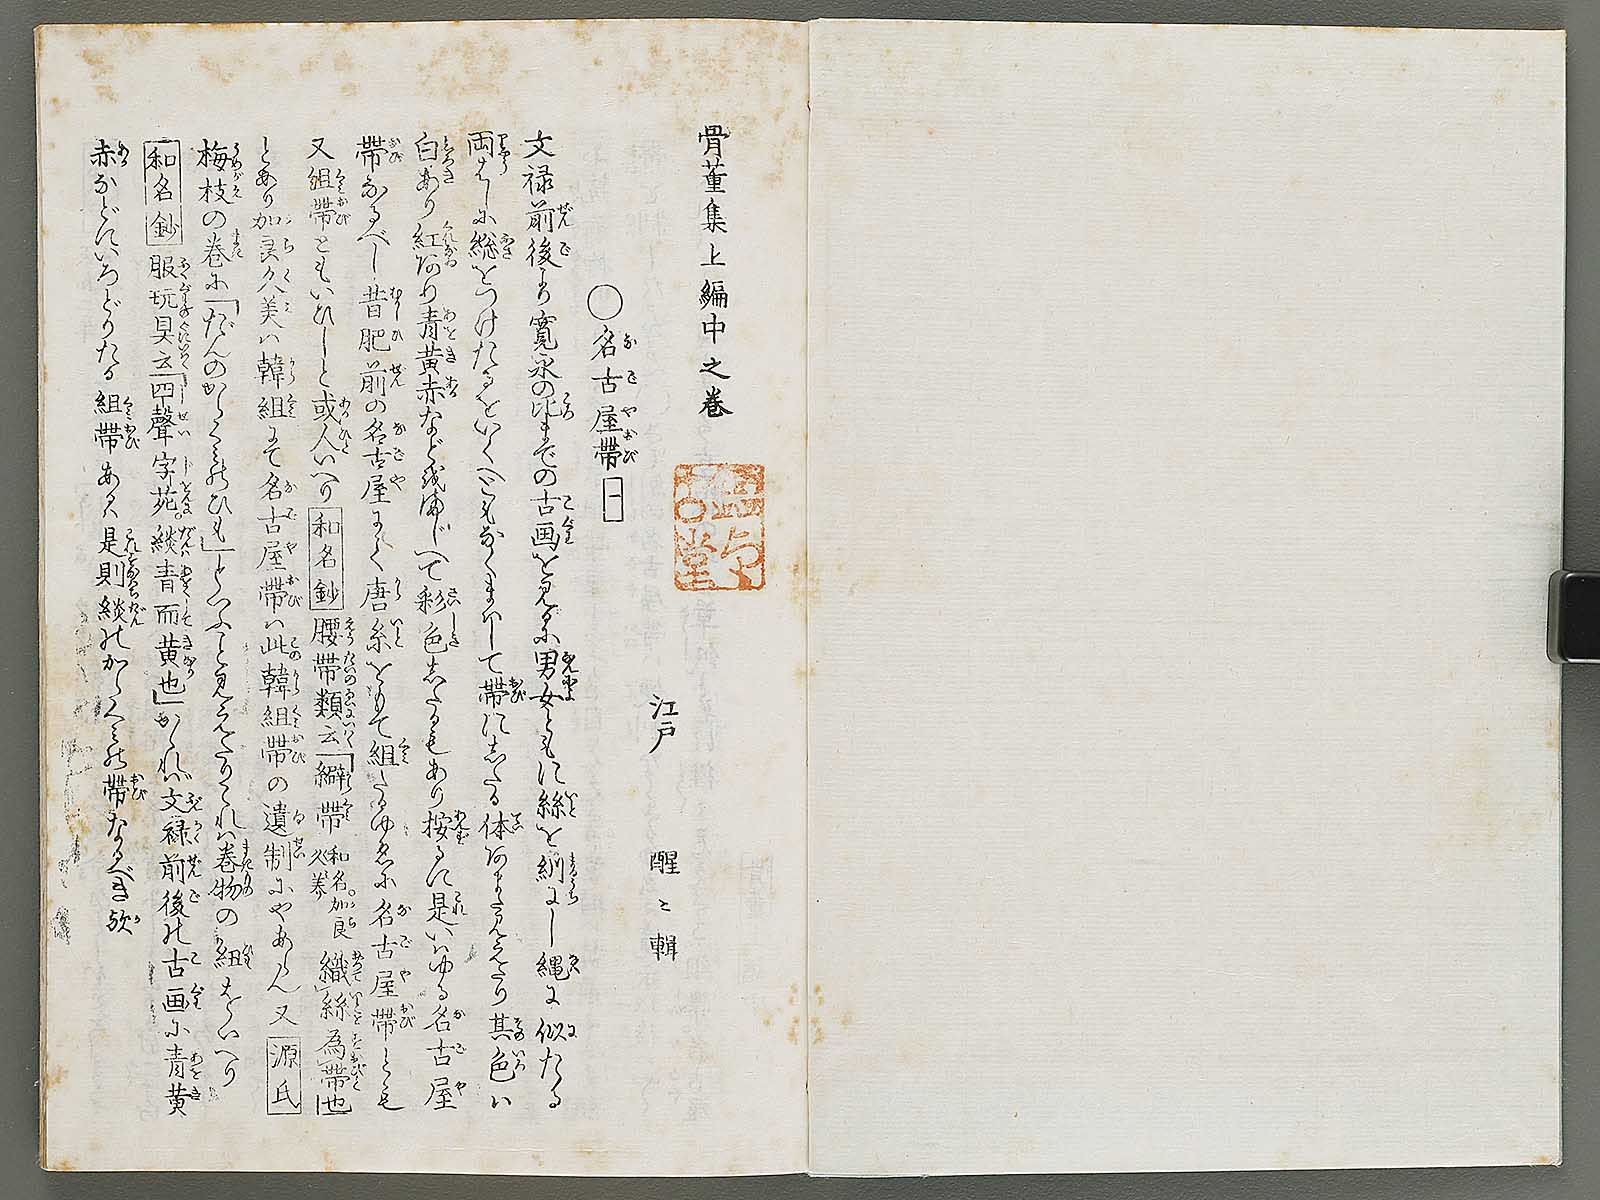 骨董集上編中之巻
江戸 醒々輯
○名古屋帯 一
文禄前後より寛永の比までの古画を見るに男女ともに絲を網にし縄に似たる
両はしに総をつけたるをいくへともなくまはして帯にしたる体あまた見えたり其色は
白あり紅あり青黄赤などをまじへて彩色したるもあり按るに是いはゆる名古屋
帯なるべし昔肥前の名古屋にて唐糸をもて組たるゆゑに名古屋帯とも
又組帯ともいひしと或人いへり和名鈔腰帯類云「繝帯 和名加良久美 織絲為帯也」
とあり加良久美は韓組にて名古屋帯は此韓組帯の遺制にやあらん又源氏
梅枝の巻に「だんのからくみのひも」といふこと見えたりこれは巻物の紐をいへり
和名鈔服玩具云「四聲字苑繎青而黄也」かゝれば文禄前後の古画に青黄
赤などにいろどりたる組帯あるは是則繎のからくみの帯なるべき歟